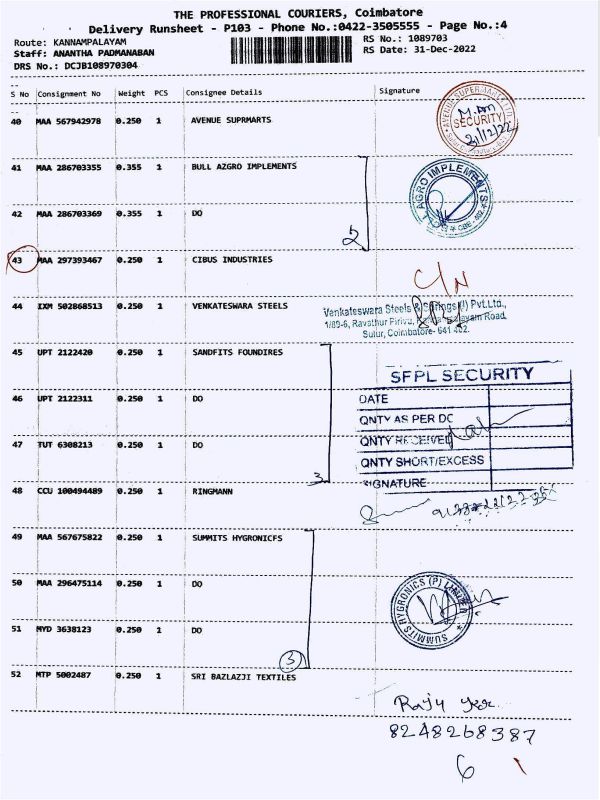 THE PROFESSIONAL COURIERS, Coimbatore
Delivery Runsheet - P103 - Phone No.:0422-3505555 - Page No.:4
Route: KANNAMPALAYAM RS No.: 1089703
Staff: ANANTHA PADMANABAN RS Date: 31-Dec-2022
DRS No.: DCJB108970304
S No Consignment No Weight PCS Consignee Details Signature
40 MAA 567942978 0.250 1 AVENUE SUPRMARTS
SECURITY
31/12/22
41 MAA 286703355 0.355 1 BULL AZGRO IMPLEMENTS
AGRO IMPLEMENTS
42 MAA 286703369 0.355 1 DO
2
43 MAA 297393467 0.250 1 CIBUS INDUSTRIES
C/N
44 IXM 502868513 1 0.250 1 VENKATESWARA STEELS
Venkateswara Steels & Springs (I) Pvt.Ltd.,
1/89-6, Ravathur Pirivu, Road,
Sulur, Coimbatore- 641 402.
45 UPT 2122420 0.250 1 SANDFITS FOUNDIRES
SFPL SECURITY
DATE
46 UPT 2122311 0.250 1 DO
QNTY AS PER DC
47 TUT 6308213 0.250 1 DO
QNTY RECEIVED
QNTY SHORT/EXCESS
3
SIGNATURE
48 CCU 100494489 0.250 1 RINGMANN
49 MAA 567675822 0.250 1 SUMMITS HYGRONICFS
50 MAA 296475114 0.250 1 DO
SUMMITS HYGRONICS (P) LIMITED
51 MYD 3638123 0.250 1 DO
3
52 MTP 5002487 0.250 1 SRI BAZLAZJI TEXTILES
Raju
8248268387
6